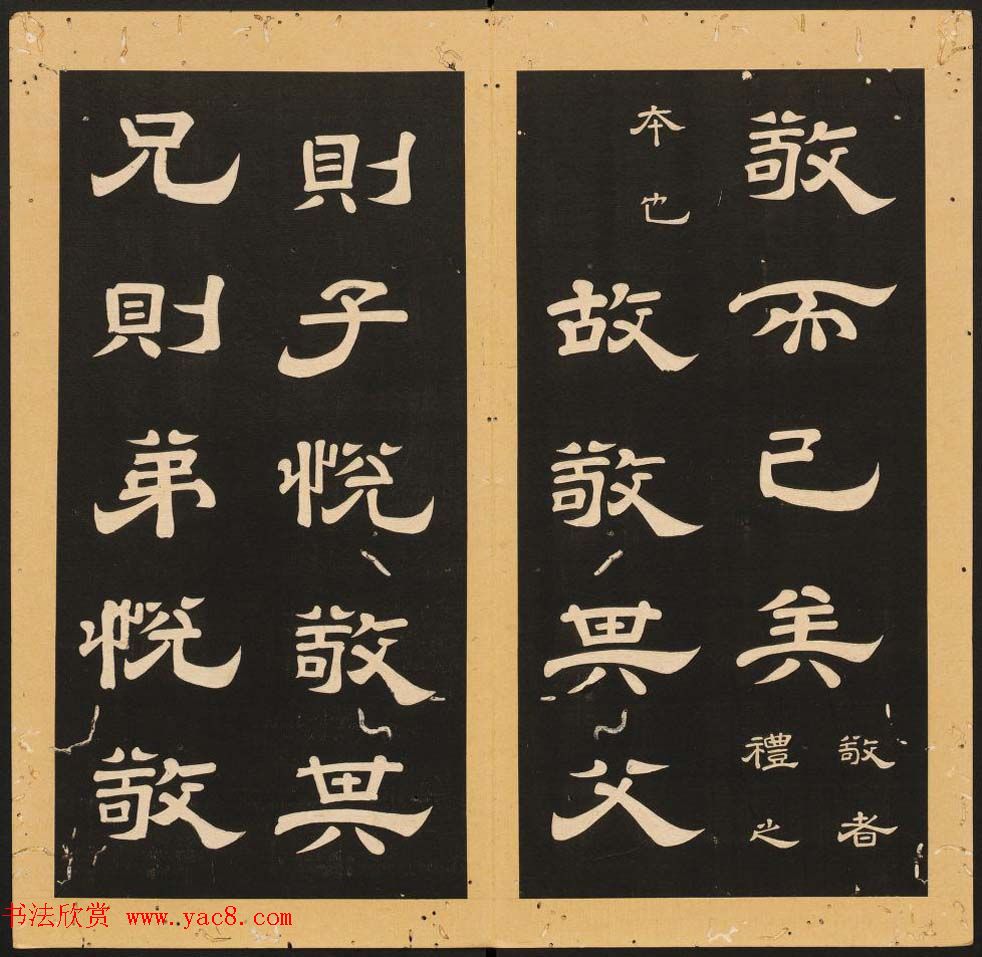 敬而已矣
敬者
禮之
本也
故敬其父
則子悅敬其
兄則弟悅敬
书法欣赏 www.yac8.com